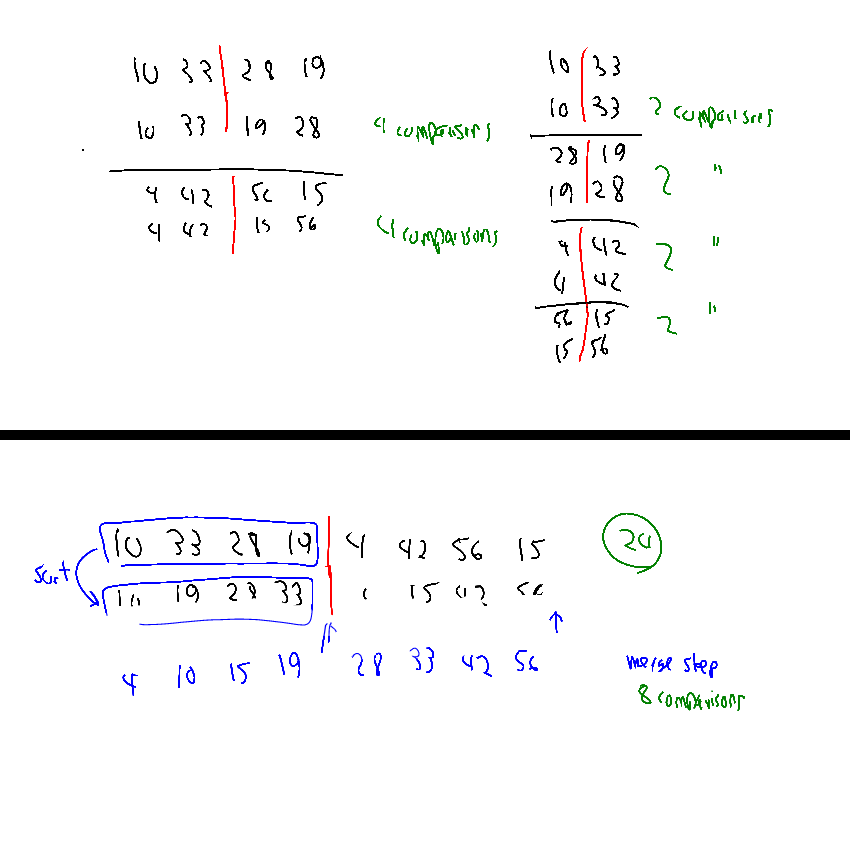 10 33 28 19
10 33 19 28
4 comparisons
4 42 56 15
4 42 15 56
4 comparisons
10 33
10 33
2 comparisons
28 19
19 28
2 "
4 42
4 42
2 "
56 15
15 56
2 "
10 33 28 19 4 42 56 15
24
sort
10 19 28 33 4 15 42 56
4 10 15 19 28 33 42 56
merge step
8 comparisons